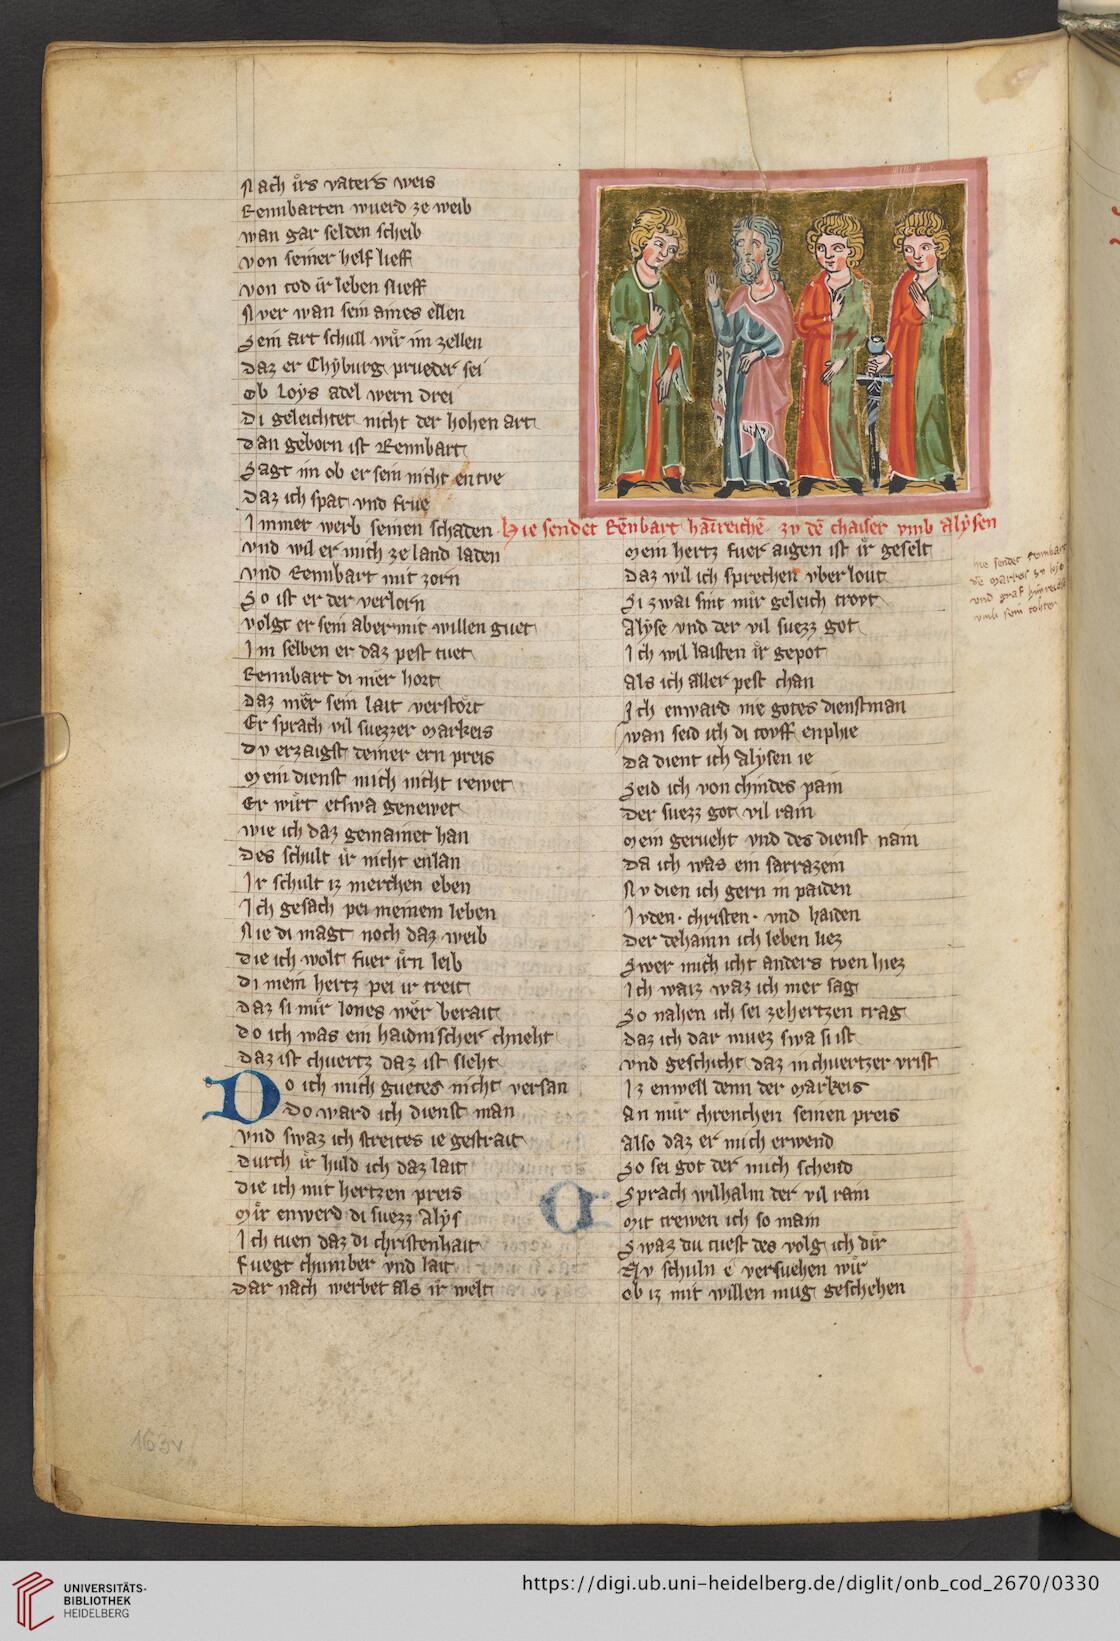 Nach irs vaters weis
Rennbarten wuerd ze weib
wan gar selden scheib
von seiner helf lieff
von tod ir leben slieff
Aver wan sein aines ellen
Sein art schull wir im zellen
Daz er Chyburg prueder sei
Ob Loys adel wern drei
Di geleichtet nicht der hohen art
Dan geborn ist Rennbart
Sagt im ob er sein nicht entve
Daz ich spat vnd frue
Immer werb seinen schaden
vnd wil er mich ze land laden
vnd Rennbart mit zorn
So ist er der verlorn
volgt er sein aber mit willen guet
Im selben er daz pest tuet
Rennbart di mer hort
Daz mer sein lait verstort
Er sprach vil suezzer Markeis
Dv erzaigst deiner ern preis
Mein dienst mich nicht rewet
Er wirt etswa genewet
wie ich daz gemainet han
Des schult ir nicht enlan
Ir schult iz merchen eben
Ich gesach pei meinem leben
Nie di magt noch daz weib
Die ich wolt fuer irn leib
Di mein hertz pei ir treit
Daz si mir lones wer berait
Do ich was ein haidnischer chneht
Daz ist chuertz daz ist sleht
Do ich mich guetes nicht versan
Do ward ich dienst man
vnd swaz ich streites ie gestrait
Durch ir huld ich daz lait
Die ich mit hertzen preis
Mir enwerd di suezz Alys
Ich tuen daz di christenhait
Fuegt chumber vnd lait
Dar nach werbet als ir welt
Hie sendet Renbart hainreichen zv dem chaiser vmb Alysen
Mein hertz fuer aigen ist ir geselt
Daz wil ich sprechen vberlout
Si zwai sint mir geleich trovt
Alyse vnd der vil suezz got
Ich wil laisten ir gepot
Als ich aller pest chan
Ich enward nie gotes dienstman
wan seid ich di tovff enphie
Da dient ich Alysen ie
Seid ich von chindes pain
Der suezz got vil rain
Mein gerueht vnd des dienst nam
Da ich was ein sarrazein
Nv dien ich gern in paiden
Ivden · christen · vnd haiden
Der dehainn ich leben liez
Swer mich icht anders tven hiez
Ich waiz waz ich mer sag
So nahen ich sei ze hertzen trag
Daz ich dar muez swa si ist
vnd geschicht daz in chuertzer vrist
Iz enwell denn der Markeis
An mir chrenchen seinen preis
Also daz er mich erwend
So sei got der mich schend
Sprach wilhalm der vil rain
Mit trewen ich so main
Swaz du tuest des volg ich dir
Nv schuln e versuehen wir
Ob iz mit willen mug geschehen
hie sendet rennbart
vnd graf hainreich
vmb sein tohter
163v
UNIVERSITÄTS-
BIBLIOTHEK
HEIDELBERG
https://digi.ub.uni-heidelberg.de/diglit/onb_cod_2670/0330